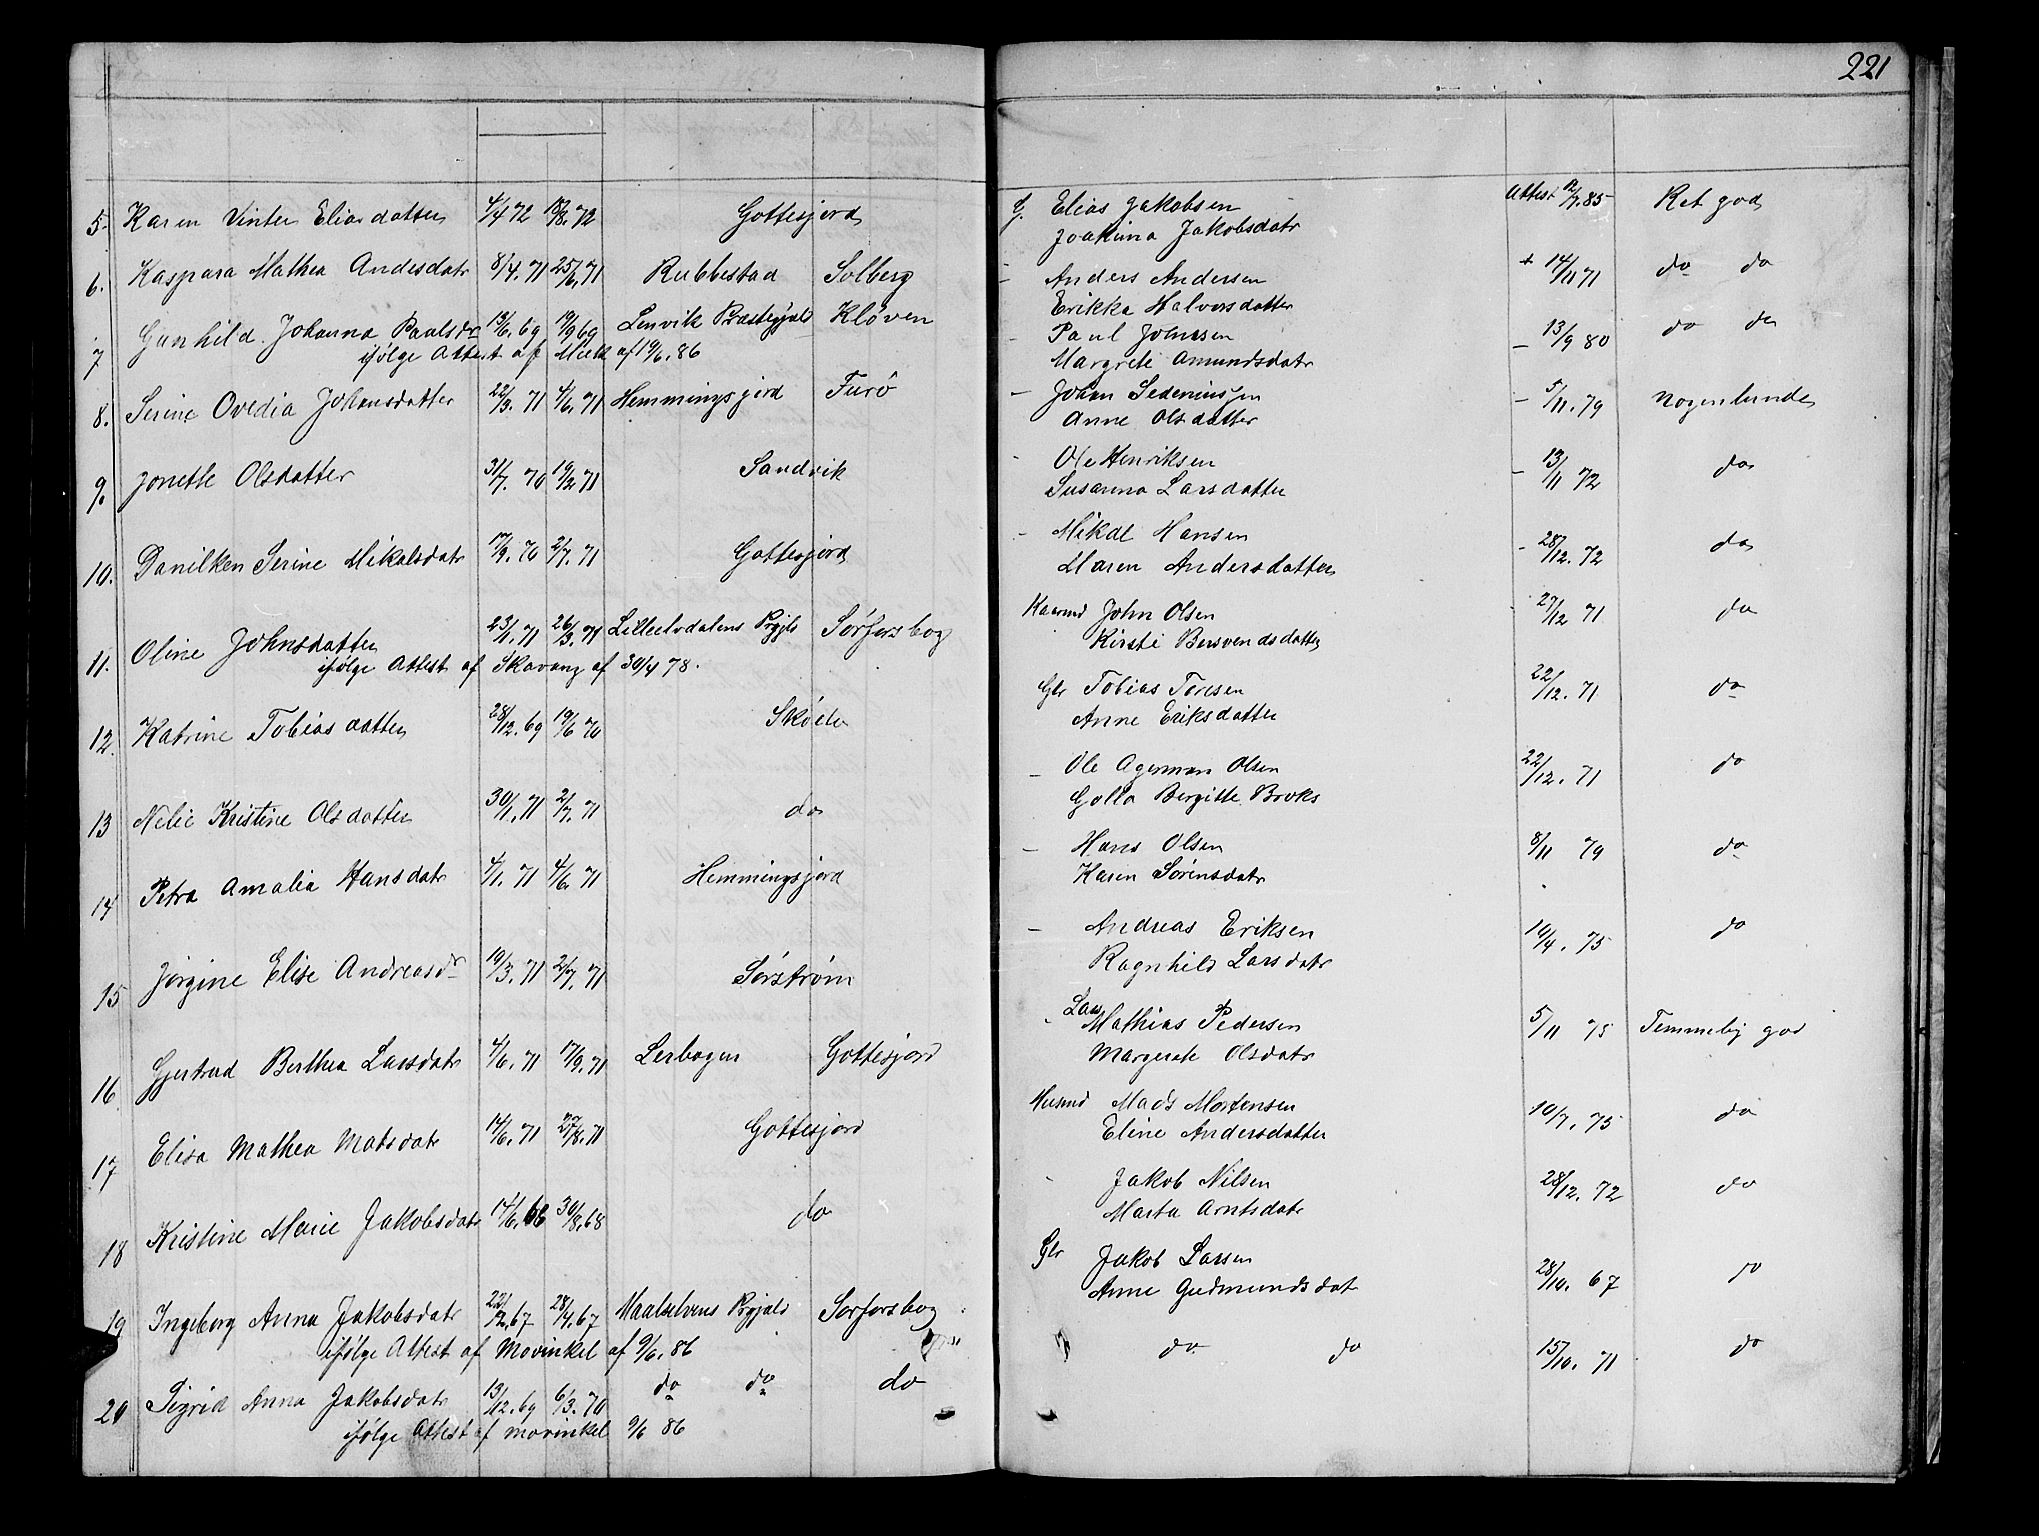 221
5. Karen Vinter Eliasdatter 4/4 72 18/8. 72 Gottesjord
G. Elias Jakobsen Attest 12/7. 85 Ret god
Joakima Jakobsdatr
6. Kaspara Mathea Andesdatr 8/4. 71 25/6. 71 Rubbestad Solberg
— Anders Andersen + 14/11 71 do do
Erikka Halvorsdatter
7 Gunhild Johanna Paulsdr 13/6. 69 19/9 69 Lenvik Præstegjeld Kløven
ifølge Attest af af 19/6. 86
- Paul Johnsen — 13/9 80 do do
Margrete Amundsdatr
8. Serine Ovedia Johansdatter 22/3. 71 4/6. 71 Hemmingsjord Furö
— Johan Sedeniussen — 5/11. 79 Nogenlunde
Anne Olsdatter
9. Jonette Olsdatter 31/7. 70 19/2 71 Sandvik
- Ole Henriksen — 13/11 72 do
Susanna Larsdatter
10. Danilken Serine Mikalsdatr 17/9. 70 2/7. 71 Gottesjord
- Mikal Hansen - 28/12. 72 do
Maren Andersdatter
11. Oline Johnsdatter 23/1. 71 26/3. 71 Lilleelvdalens Prgjld Sørforsbog
ifølge Attest af Skavang af 30/4 78.
Kaarmd John Olsen - 27/12 71 do
Kirsti Bersvendsdatter
12. Katrine Tobiasdatter 28/12. 69 19/6 70 Skøelv
Gbr Tobias Toresen 22/12. 71 do
Anne Eriksdatter
13 Nelie Kristine Olsdatter 30/1. 71 2/7. 71 do
— Ole Agerman Olsen 22/12. 71 do
Golla Bergitte Broks
14 Petra Amalia Hansdatr 4/1. 71 4/6. 71 Hemmingsjord
— Hans Olsen 8/11 79 do
Karen Sørensdatr
15 Jørgine Elise Andreasdr 19/3. 71 2/7. 71 Sørstrøm
— Andreas Eriksen 10/4. 75 do
Ragnhild Larsdatr
16. Gjertrud Berthea Larsdatr 4/6. 71 17/9. 71 Lerbogen Gottesjord
- Lars Mathias Pedersen 5/11 75 Temmelig god
Margrete Olsdatr
17 Elisa Mathea Matsdatr 14/6. 71 27/8. 71 Gottesjord
Husmd Mads Mortensen 10/7. 75 do
Eline Andersdatter
18 Kristine Marie Jakobsdatr 14/6. 68 30/8. 68 do
- Jakob Nilsen 28/12. 72 do
Marta Arntsdatr
19 Ingeborg Anna Jakobsdatr 22/2. 67 28/4. 67 Maalselvens Prgjeld Sørforsbog
ifølge Attest af Movinkel af 9/6. 86
Gbr Jakob Larsen 28/10. 67 do
Anne Gudmundsdat
20 Sigrid Anna Jakobsdatr 13/12. 69 6/3. 70 do do do
ifølge Attest af Movinkel 9/6 86
do do 15/10. 71 do